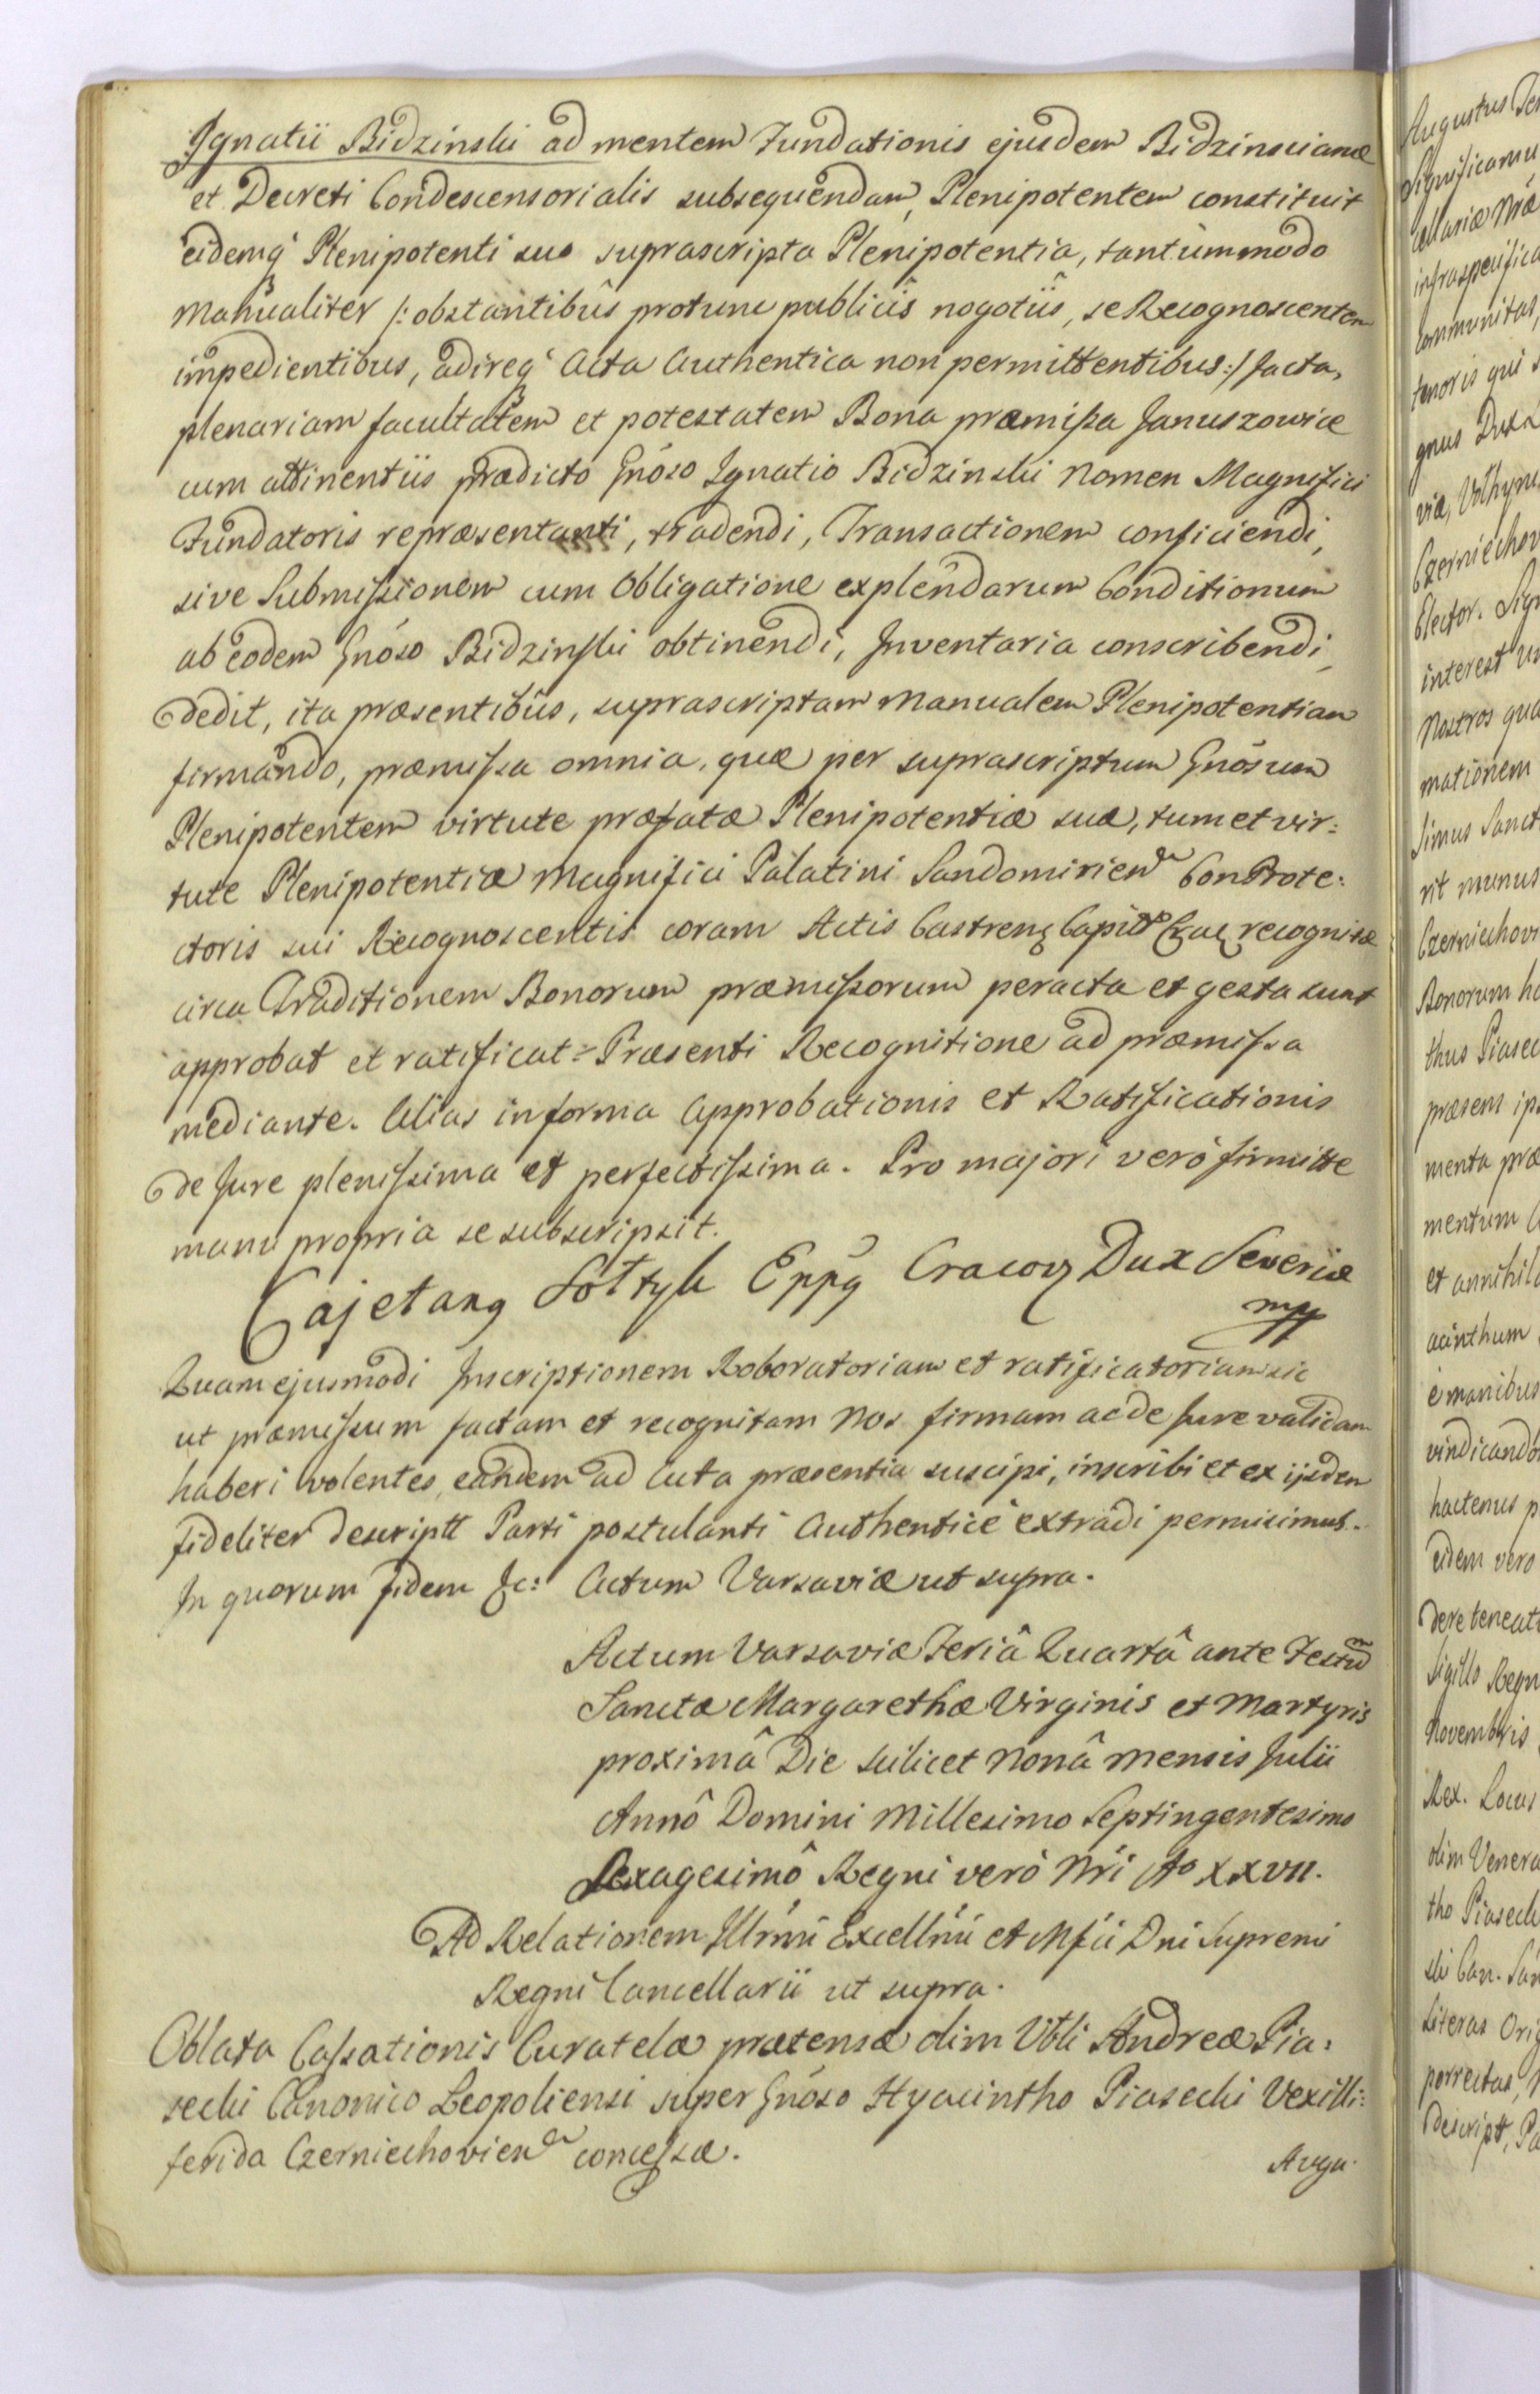 Ignatii Bidzinski ad mentem Fundationis ejusdem Bidzinscianæ
et Decreti Condescensorialis subsequendam, Plenipotentem constituit
eidemq Plenipotenti suo suprascripta Plenipotentia, tantummodo
Manualiter /: obstantibûs protunc publicîs nogotiîs, se Recognoscentem
impedientibus, adireq Acta Authentica non permittentibus :/ facta,
plenariam facultatem et potestatem Bona præmissa Januszowice
cum attinentiis prædicto Gnoso Ignatio Bidzinski Nomen Magnifici
Fundatoris repræsentanti, tradendi, Transactionem conficiendi,
sive Submissionem cum Obligatione explendarum Conditionum
ab eodem Gnoso Bidzinski obtinendi, Inventaria conscribendi,
dedit, ita præsentibûs, suprascriptam Manualem Plenipotentiam
firmando, præmissa omnia, quæ per suprascriptum Gnosum
Plenipotentem virtute præfatæ Plenipotentiæ suæ, tum et vir:
tute Plenipotentiæ Magnifici Palatini Sandomirien ConProte:
ctoris sui Recognoscentis coram Actis Castren Capit Crac recognitæ
circa Traditionem Bonorum præmissorum peracta et gesta sunt
approbat et ratificat Præsenti Recognitione ad præmissa
mediante. Alias in forma Approbationis et Ratificationis
de Jure plenissima et perfectissima. Pro majori verò firmitte
manu propria se subscripsit.
Cajetang Sołtyk Eppg Cracov Dux Severiæ
mpp
Quam ejusmodi Inscriptionem Roboratoriam et ratificatoriam sic
ut præmissum factam et recognitam Nos firmam ac de Jure validam
haberi volentes, eandem ad Acta præsentia suscipi, inscribi et ex ijsdem
fideliter descriptt Parti postulanti Authenticè extradi permisimus.
In quorum fidem &c: Actum Varsaviæ ut supra.
Actum Varsaviæ Feriâ Quartâ ante Festum
Sanctæ Margarethæ Virginis et Martyris
proximâ Die scilicet Nonâ Mensis Julii
Annô Domini Millesimo Septingentesimo
Sexagesimô Regni verò Nri Ao XXVII.
Ad Relationem Illrmi Excellmi et Mfci Dni Supremi
Regni Cancellarii ut supra.
Oblata Cassationis Curatelæ prætensæ olim Vbli Andreæ Pia:
secki Canonico Leopoliensi super Gnoso Hyacintho Piasecki Vexilli:
ferida Czerniechovien concessæ.
Augu.
Augustus
Significamu
infraspecifica
communitas,
tenoris qui
gnus Dux
viæ, Volhyni
Czerniechov
Elector. Sign
interest
Nostros qua
mationem
simus Sanct
rit munus
Czerniechovi
Bonorum
thus Piasec
præsens
menta præ
mentum
et annihila
acinthum
e manibus
vindicando
hactenus
eidem vero
dere teneat
Sigillo Regn
Novembris
Rex. Locus
olim Venera
tho Piaseck
ski Can.
Literas Orig
porrectas,
descriptt,